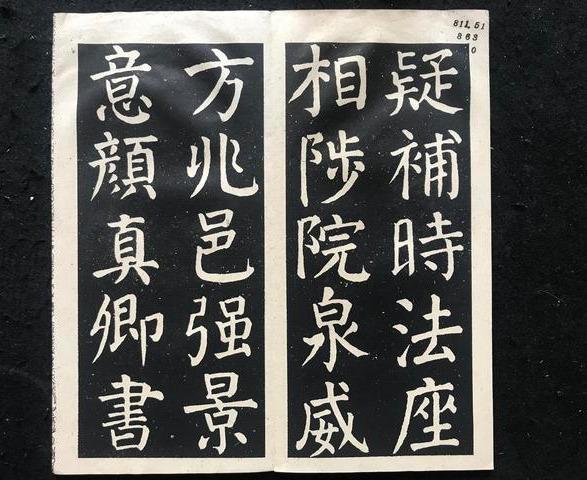 811.51
863
0
疑補時法座
相陟院泉威
方兆邑强景
意顔真卿書